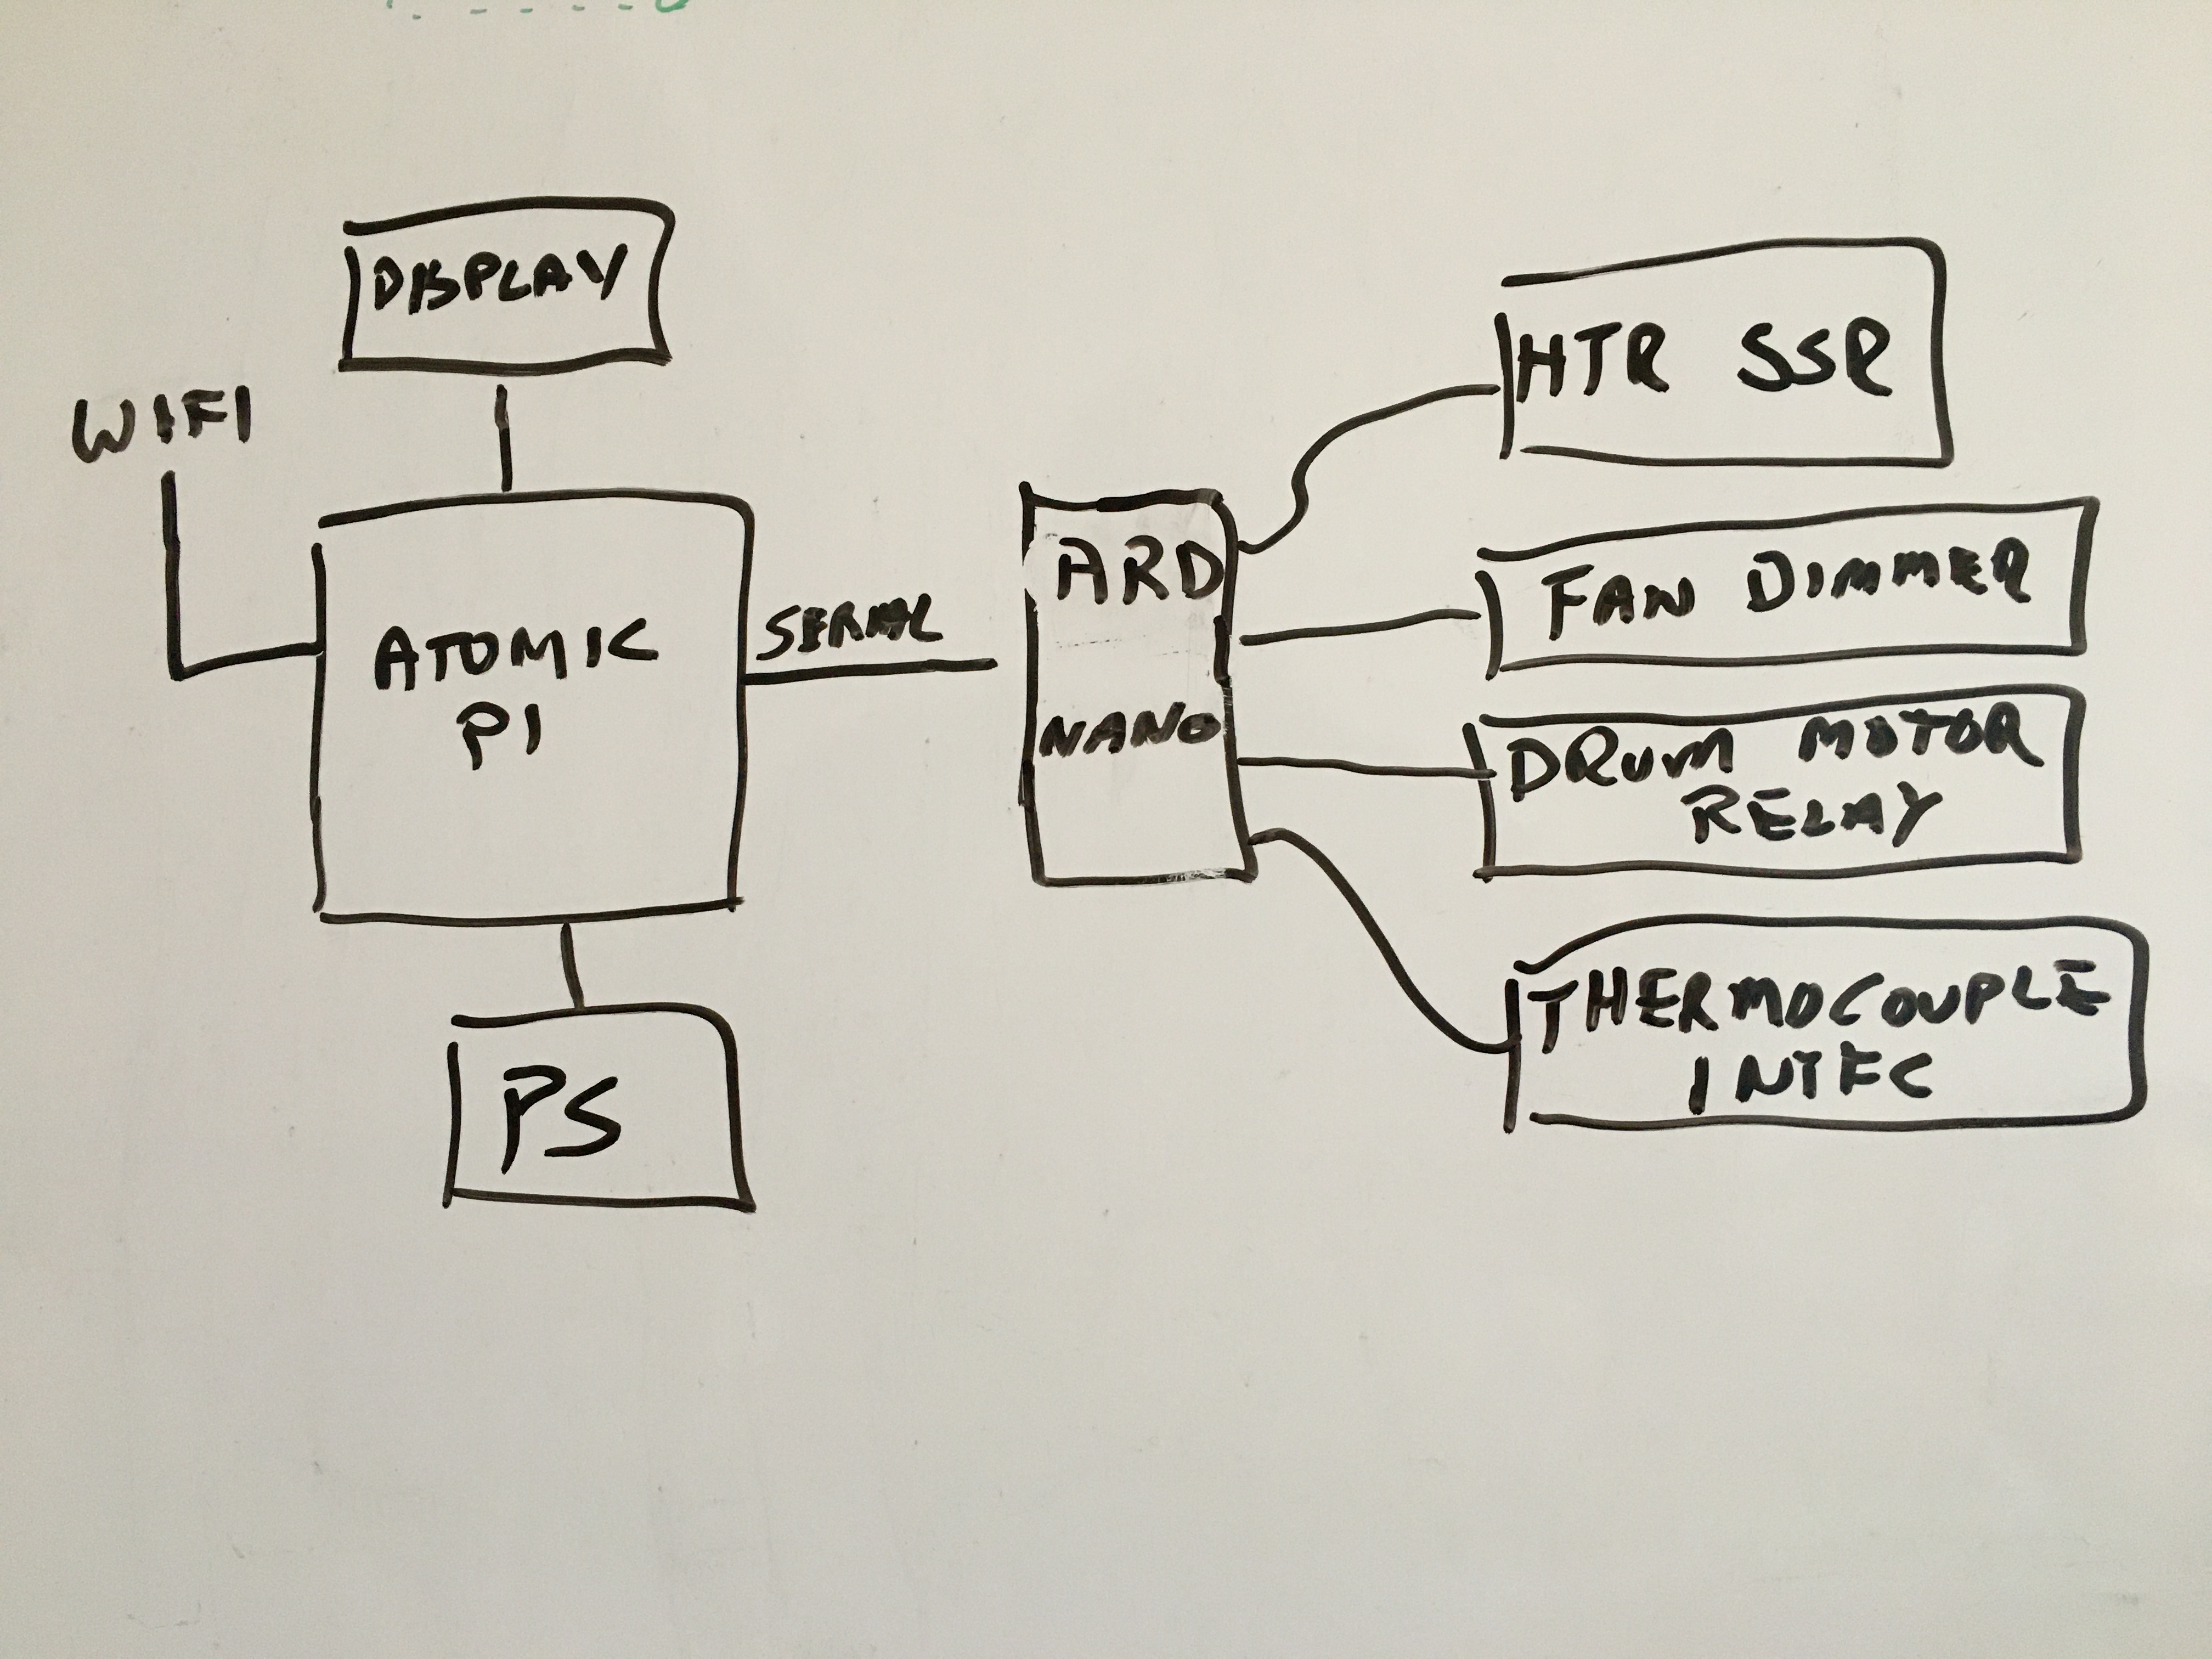 DISPLAY
WIFI
ATOMIC
PI
SERIAL
PS
ARD
NANO
HTR SSR
FAN DIMMER
DRUM MOTOR
RELAY
THERMOCOUPLE
INTFC